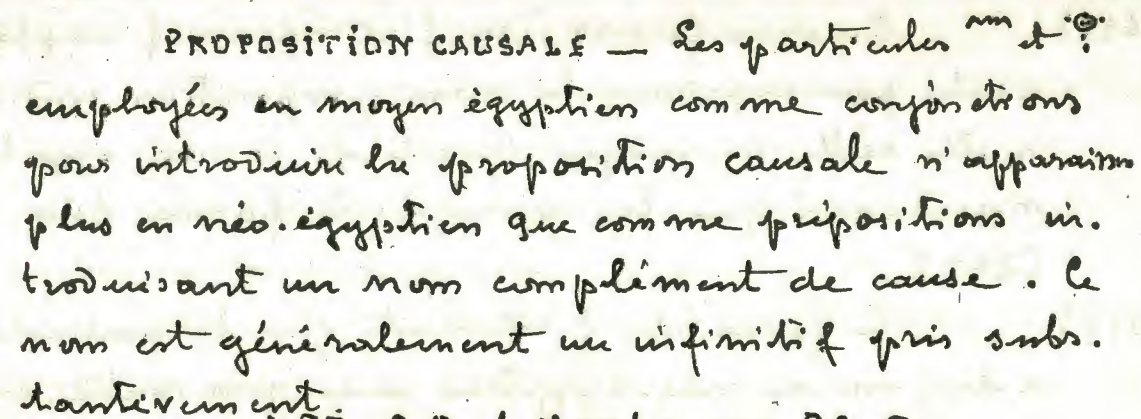 PROPOSITION CAUSALE — Les particules 𓈖 et 𓁷
employées en moyen égyptien comme conjonctions
pour introduire la proposition causale n'apparaiss
plus en néo-égyptien que comme prépositions in-
troduisant un nom complément de cause. Ce
nom est généralement un infinitif pris subs-
tantivement.